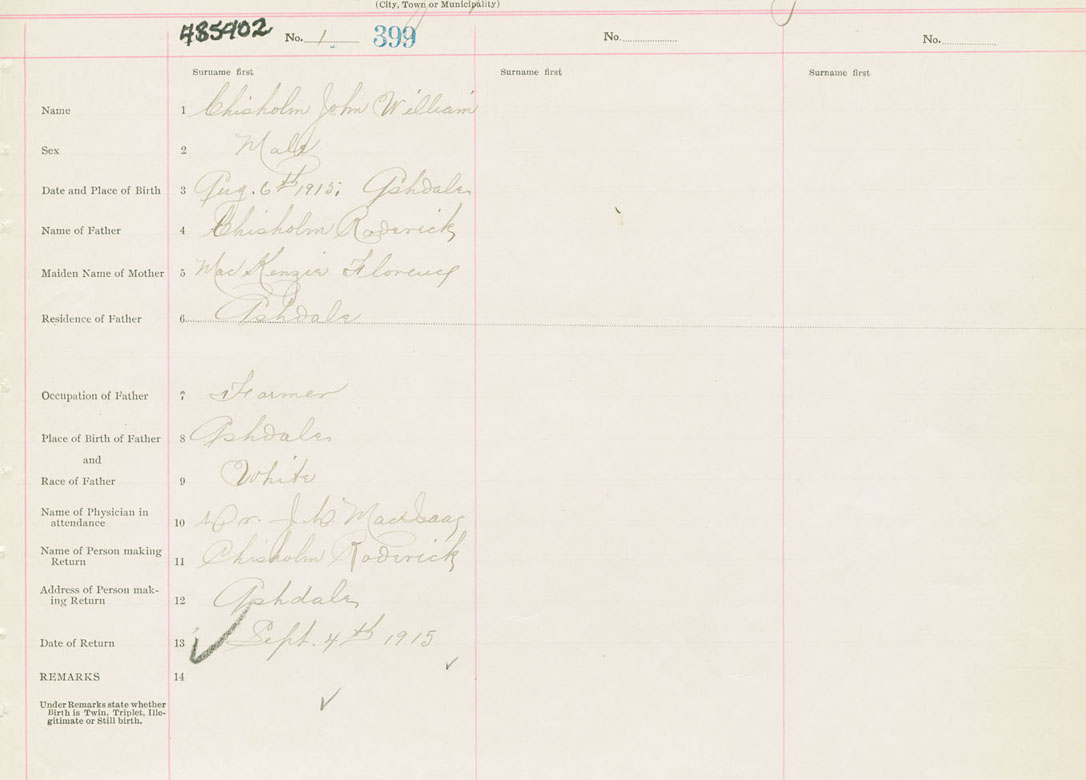 (City, Town or Municipality)
485402 No. 1 399 No. No.
Surname first Surname first Surname first
Name 1 Chisholm John William
Sex 2 Male
Date and Place of Birth 3 Aug. 6th 1915; Ashdale
Name of Father 4 Chisholm Roderick
Maiden Name of Mother 5 MacKenzie Florence
Residence of Father 6 Ashdale
Occupation of Father 7 Farmer
Place of Birth of Father 8 Ashdale
and
Race of Father 9 White
Name of Physician in
attendance 10 Dr. J. MacIsaac
Name of Person making
Return 11 Chisholm Roderick
Address of Person mak-
ing Return 12 Ashdale
Date of Return 13 Sept. 4th 1915
REMARKS 14
Under Remarks state whether
Birth is Twin, Triplet, Ille-
gitimate or Still birth.